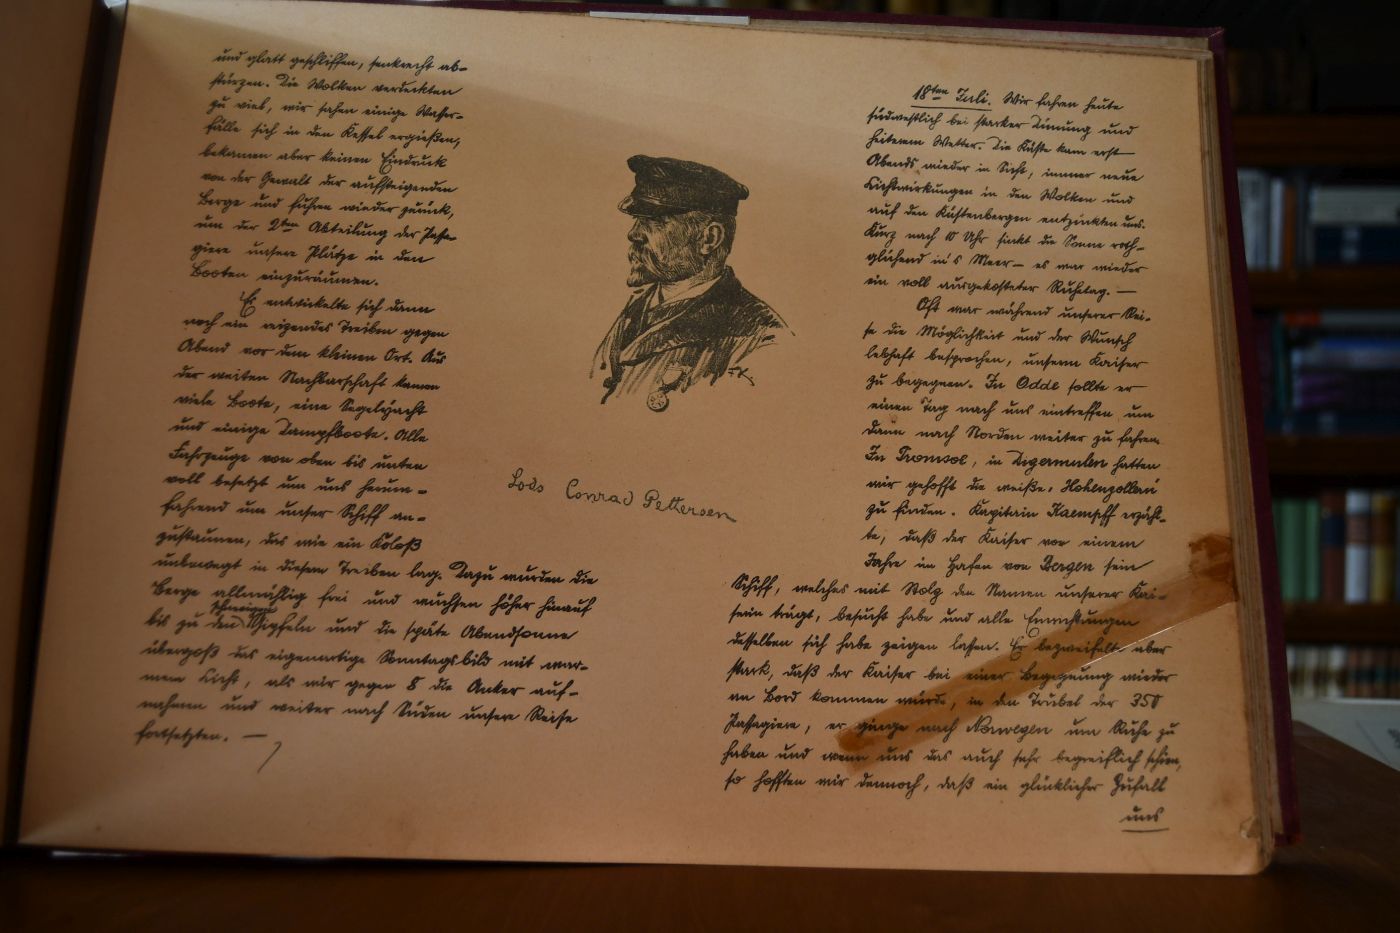 und glatt geschliffen, senkrecht ab-
stürzen. Die Wolken verdeckten
zu viel, wir sahen einige Wasser-
fälle sich in den Kessel ergießen,
bekamen aber keinen Eindruck
von der Gewalt der aufsteigenden
Berge und fuhren wieder zurück,
um der 2ten Abteilung der Passa-
giere unsere Plätze in den
Booten einzuräumen.
Es entwickelte sich dann
noch ein reizendes Treiben gegen
Abend vor dem kleinen Ort. Aus
der weiten Nachbarschaft kamen
viele Boote, eine Segelyacht
und einige Dampfboote. Alle
Fahrzeuge von oben bis unten
voll besetzt um uns herum-
fahrend um unser Schiff an-
zustaunen, das wie ein Koloß
unbewegt in diesem Treiben lag. Dazu wurden die
Berge allmählig frei und wuchsen höher hinauf
bis zu den schneeigen Gipfeln und die späte Abendsonne
übergoß das eigenartige Sonntagsbild mit war-
mem Licht, als wir gegen 8 die Anker auf-
nahmen und weiter nach Süden unsere Reise
fortsetzten. —
FK
Lods Conrad Pettersen
18ten Juli. Wir fahren heute
südwestlich bei starker Dünung und
heiterem Wetter. Die Küste kam erst
Abends wieder in Sicht, immer neue
Lichtwirkungen in den Wolken und
auf den Küstenbergen entzückten uns.
Kurz nach 10 Uhr sinkt die Sonne roth-
glühend in's Meer — es war wieder
ein voll ausgekosteter Ruhetag. —
Oft war während unserer Rei-
se die Möglichkeit und der Wunsch
lebhaft besprochen, unserm Kaiser
zu begegnen. In Odde sollte er
einen Tag nach uns eintreffen um
dann nach Norden weiter zu fahren.
In Tromsoe, in Digermulen hatten
wir gehofft die weiße „Hohenzollern“
zu finden. Kapitain Kaempff erzähl-
te, daß der Kaiser vor einem
Jahre im Hafen von Bergen sein
Schiff, welches mit Stolz den Namen unserer Kai-
serin trägt, besucht habe und alle Einrichtungen
desselben sich habe zeigen lassen. Er bezweifelte aber
stark, daß der Kaiser bei einer Begegnung wieder
an Bord kommen würde, in den Trubel der 350
Passagiere, er ginge nach Norwegen um Ruhe zu
haben und wenn uns das auch sehr begreiflich schien,
so hofften wir dennoch, daß ein glücklicher Zufall
uns